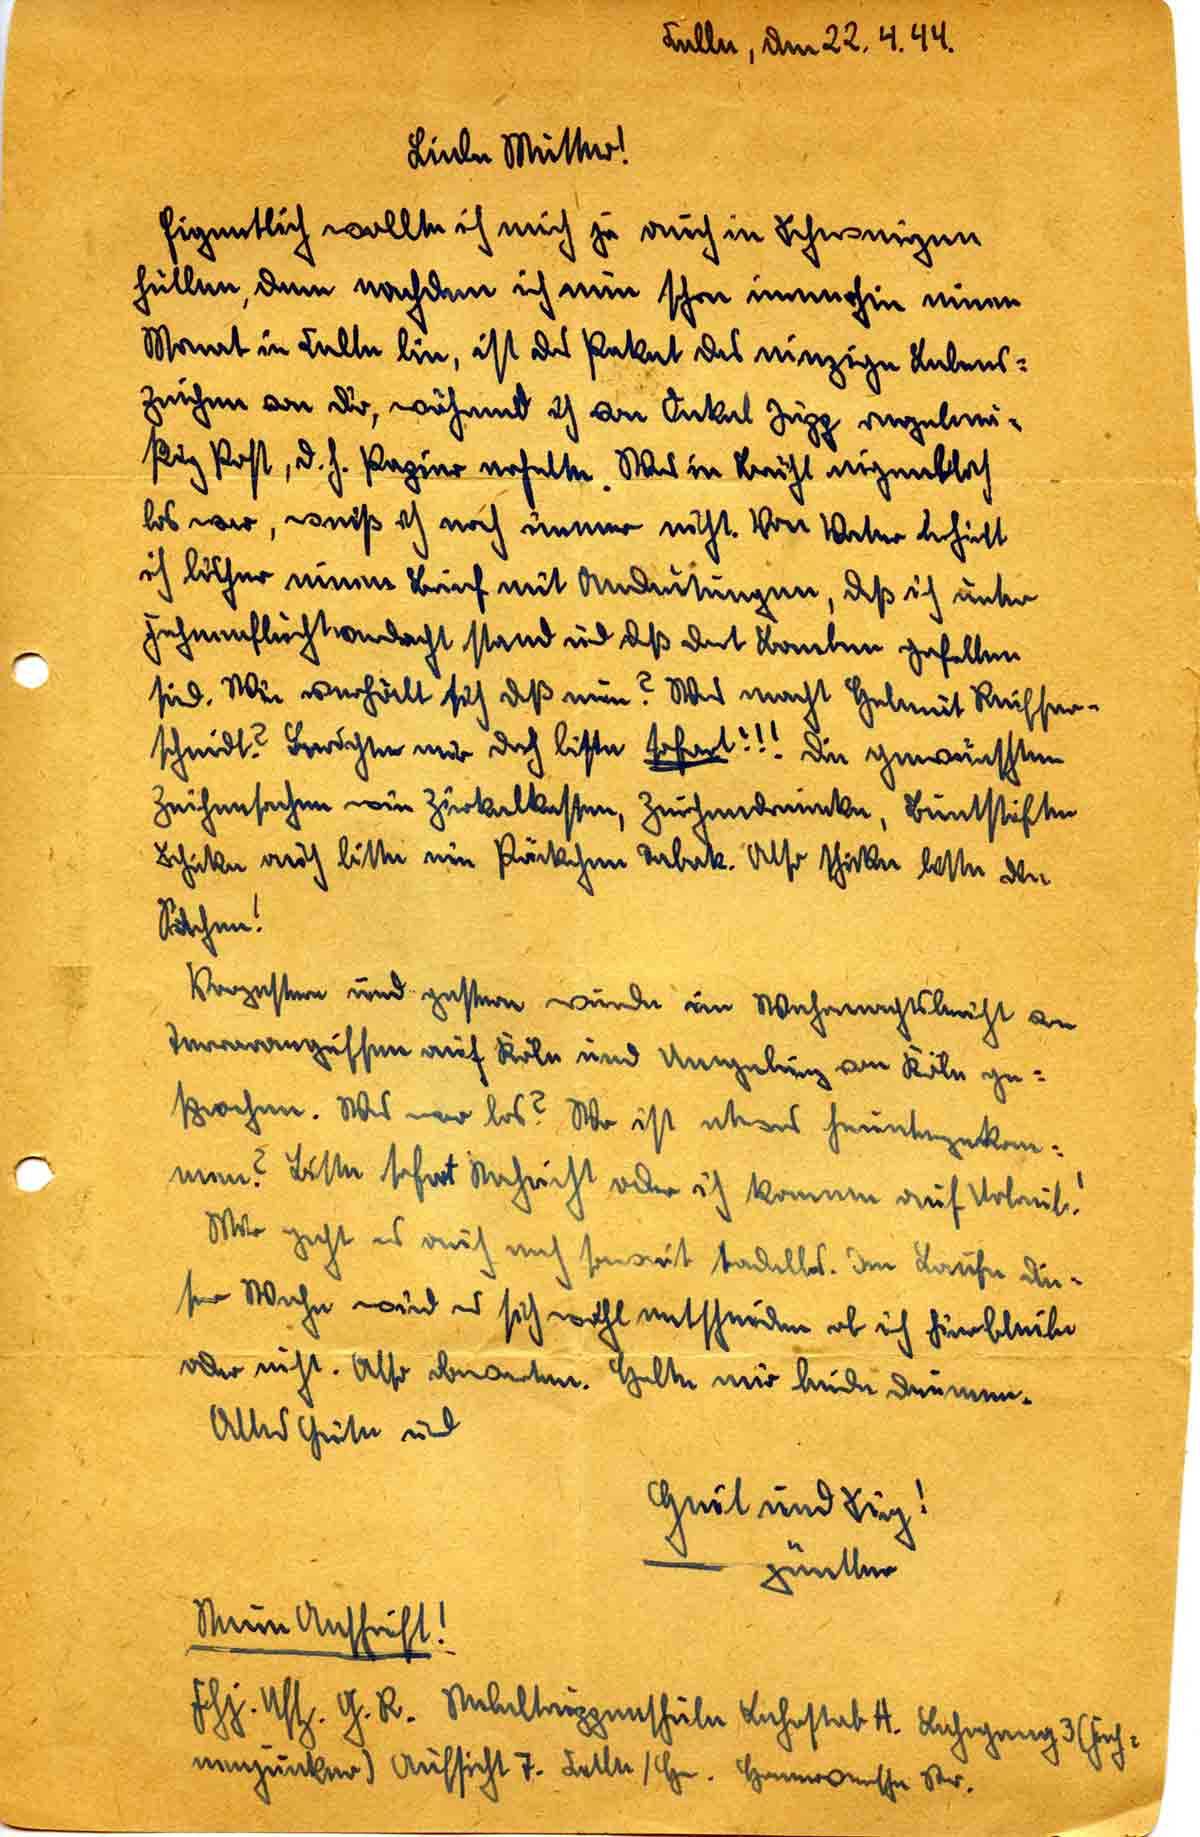 Celle, den 22.4.44.
Liebe Mutter!
Eigentlich wollte ich mich ja auch in Schweigen
hüllen, denn nachdem ich nun schon immerhin einen
Monat in Celle bin, ist das Paket das einzige Lebens=
zeichen von Dir, während ich von Onkel Jupp regelmä=
ßig Post, d.h. Papier erhalte. Was in Brühl eigentlich
los war, weiß ich noch immer nicht. Von Vater erhielt
ich bisher einen Brief mit Andeutungen, daß ich unter
Fahnenfluchtverdacht stand und daß dort Bomben gefallen
sind. Wie verhält sich daß nun? Was macht Helmut Reiffer=
scheidt? Berichte mir doch bitte sofort!!! Die gewünschten
Zeichensachen wie Zirkelkasten, Zeichendreiecke, Buntstifte
Schicke auch bitte ein Päckchen Tabak. Also schicke bitte die
Sachen!
Vorgestern und gestern wurde im Wehrmachtsbericht von
Terrorangriffen auf Köln und Umgebung von Köln ge=
sprochen. Was war los? Wo ist etwas heruntergekom=
men? Bitte sofort Nachricht oder ich komme auf Urlaub!
Mir geht es auch noch soweit tadellos. Im Laufe die=
ser Woche wird es sich wohl entscheiden ob ich hierbleibe
oder nicht. Also abwarten. Halte mir beide Daumen.
Alles Gute und
Gruß und Sieg!
Günther
Meine Anschrift!
Fhj. Uffz. G. R. Nebeltruppenschule Lehrstab A. Lehrgang 3 (Fah=
nenjunker) Aufsicht 7. Celle / Ha. Hannoversche Str.